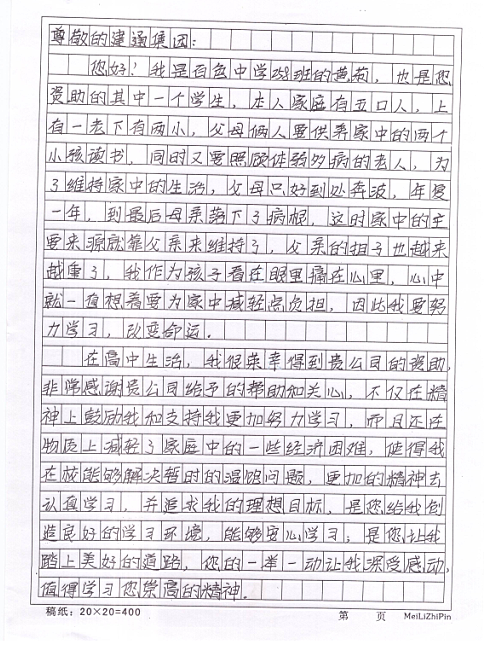 尊敬的建通集团：
您好！我是百色中学班的黄菊，也是您
资助的其中一个学生，本人家庭有五口人，上
有一老下有两小，父母俩人要供养家中的两个
小孩读书，同时又要照顾体弱多病的老人，为
了维持家中的生活，父母只好到处奔波，年复
一年，到最后母亲落下了病根，这时家中的主
要来源就靠父亲来维持了，父亲的担子也越来
越重了，我作为孩子看在眼里痛在心里，心中
就一直想着要为家中减轻点负担，因此我要努
力学习，改变命运．
在高中生活，我很荣幸得到贵公司的资助，
非常感谢贵公司给予的帮助和关心，不仅在精
神上鼓励我和支持我更加努力学习，而且还在
物质上减轻了家庭中的一些经济困难，使得我
在校能够解决暂时的温饱问题，更加的精神去
认真学习，并追求我的理想目标，是您给我创
造良好的学习环境，能够安心学习；是您让我
踏上美好的道路，您的一举一动让我深受感动，
值得学习您崇高的精神．
稿纸：20×20=400 第 页 MeiLiZhiPin